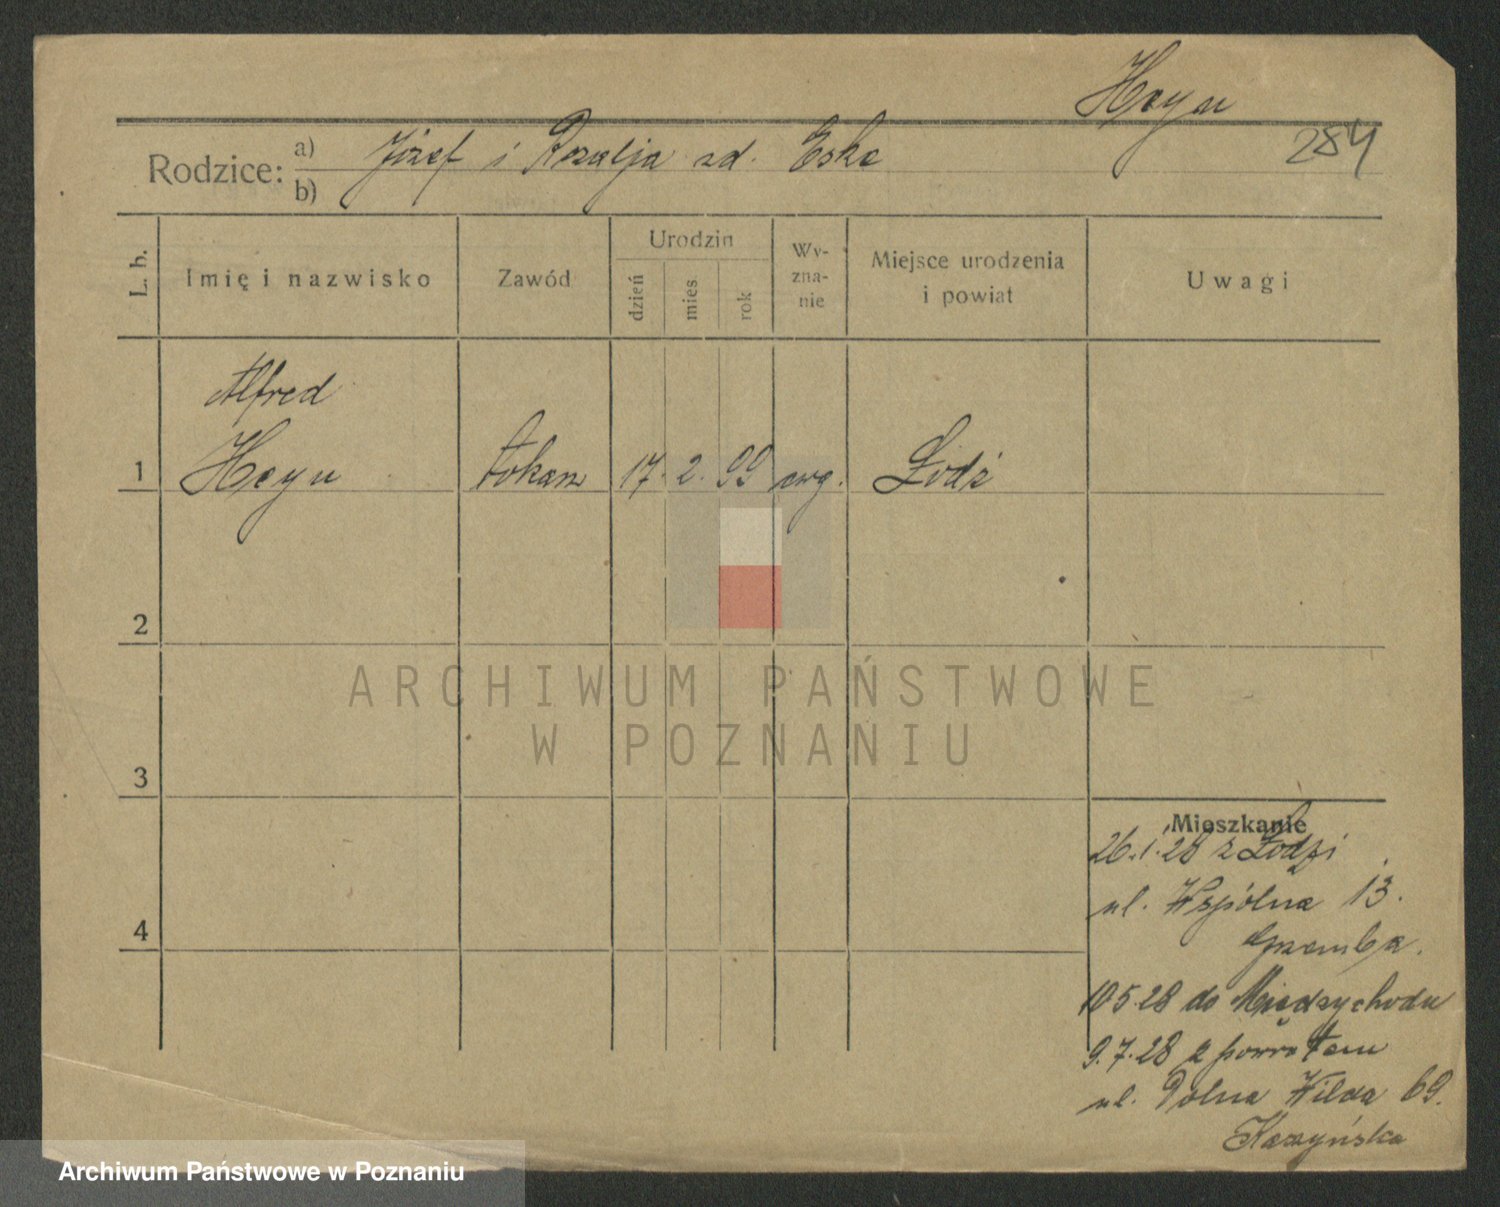 Heyn
284
Rodzice: a) Józef i Rozalja zd. Eske
b)
L. b.
Imię i nazwisko
Zawód
Urodzin
dzień
mies.
rok
Wy-
zna-
nie
Miejsce urodzenia
i powiat
Uwagi
Alfred
1 Heyn tokarz 17. 2. 99 ewg. Łódź
2
ARCHIWUM PAŃSTWOWE
W POZNANIU
3
Mieszkanie
26.1.28 z Łodzi
4
ul. Wspólna 13.
10.5.28 do Międzychodu
9.7.28 z powrotem
ul. Dolna Wilda 69.
Archiwum Państwowe w Poznaniu